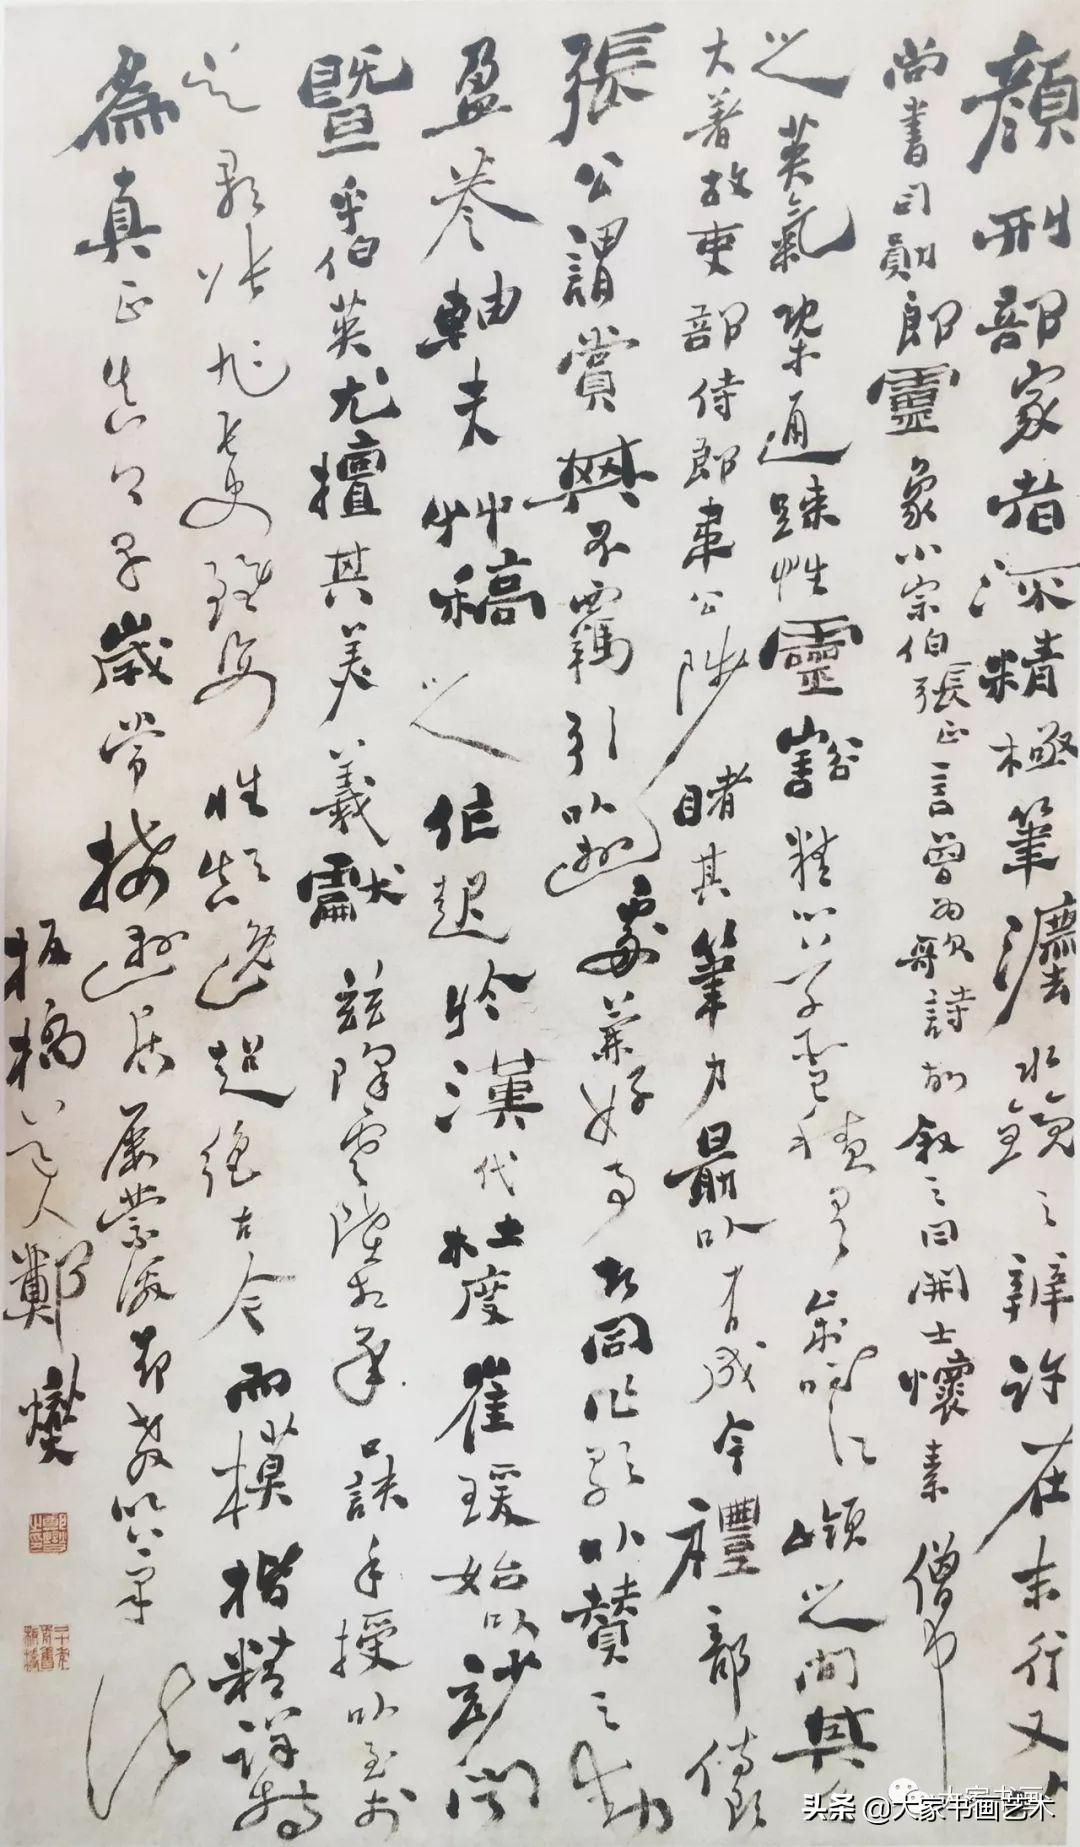 顏刑部家者流精極筆灋水鏡之辨許在末行又以
尚書司勳郎靈象小宗伯張正言曾為歌詩故敘之曰開士懷素僧中
之英氣槩通踈性靈豁精心草聖積有歲時江嶺之間其名
大著故吏部侍郎韋公陟睹其筆力勗以有成今禮部侍郎
張公謂賞其不羈引以遊處兼好事者同作歌以贊之動
盈卷軸夫艸稿之作起於漢代杜度崔瑗始以妙聞
暨乎伯英尤擅其美羲獻茲降虞陸相承口訣手授以至於
吳郡張旭長史雖姿性顛逸超絕古今而模楷精詳特
為真正真卿早歲常接遊居屢蒙激勸教以筆法
板橋道人鄭燮
大家书画
头条 @大家书画艺术